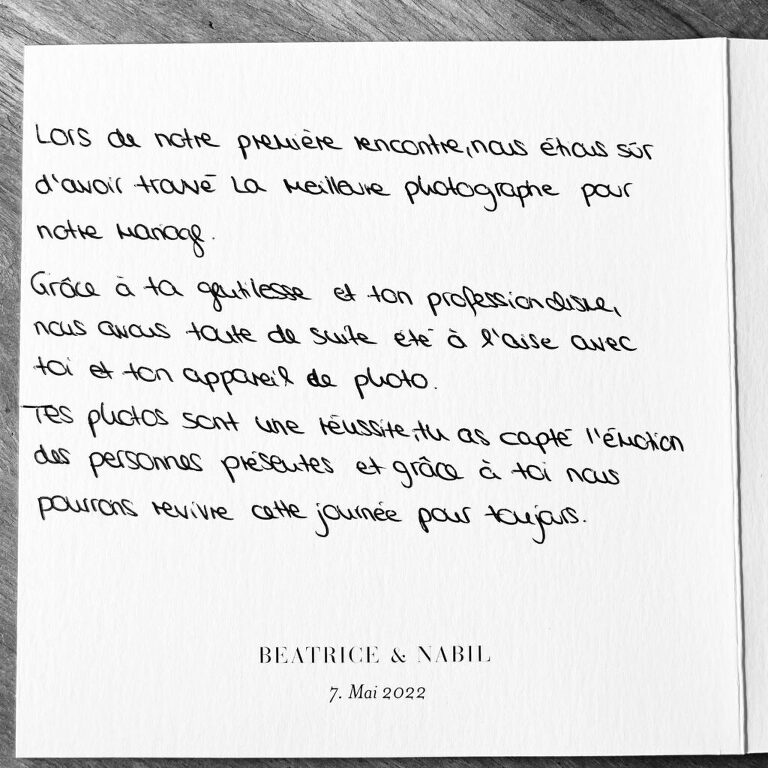 Lors de notre première rencontre, nous étions sûr
d'avoir trouvé la meilleure photographe pour
notre mariage.
Grâce à ta gentilesse et ton professionalisme,
nous avons toute de suite été à l'aise avec
toi et ton appareil de photo.
Tes photos sont une réussite, tu as capté l'émotion
des personnes présentes et grâce à toi nous
pourrons revivre cette journée pour toujours.
BEATRICE & NABIL
7. Mai 2022